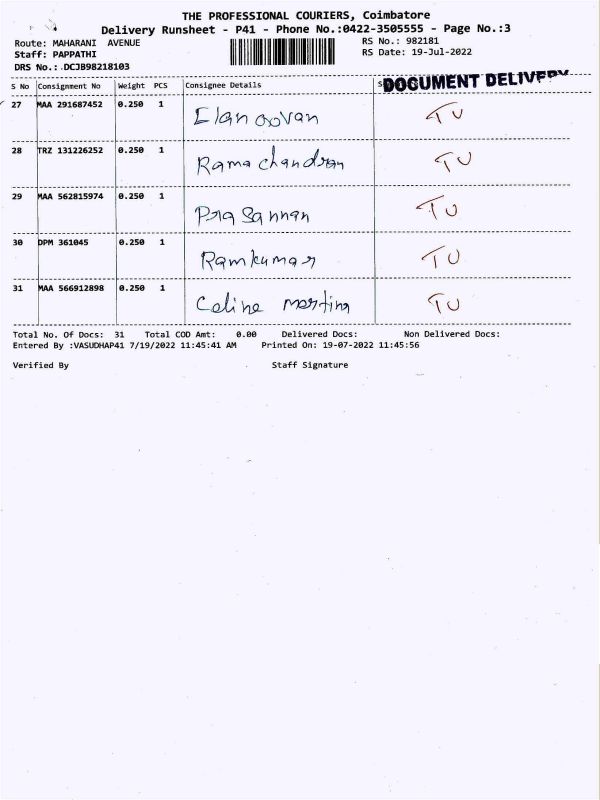 THE PROFESSIONAL COURIERS, Coimbatore
Delivery Runsheet - P41 - Phone No.:0422-3505555 - Page No.:3
Route: MAHARANI AVENUE
RS No.: 982181
Staff: PAPPATHI
RS Date: 19-Jul-2022
DRS No.: DCJB98218103
S No Consignment No Weight PCS Consignee Details DOCUMENT DELIVERY
27 MAA 291687452 0.250 1 Elangovan TU
28 TRZ 131226252 0.250 1 Ramachandran TU
29 MAA 562815974 0.250 1 Prasannan TU
30 DPM 361045 0.250 1 Ramkumar TU
31 MAA 566912898 0.250 1 Celine martina TU
Total No. Of Docs: 31 Total COD Amt: 0.00 Delivered Docs: Non Delivered Docs:
Entered By :VASUDHAP41 7/19/2022 11:45:41 AM Printed On: 19-07-2022 11:45:56
Verified By Staff Signature